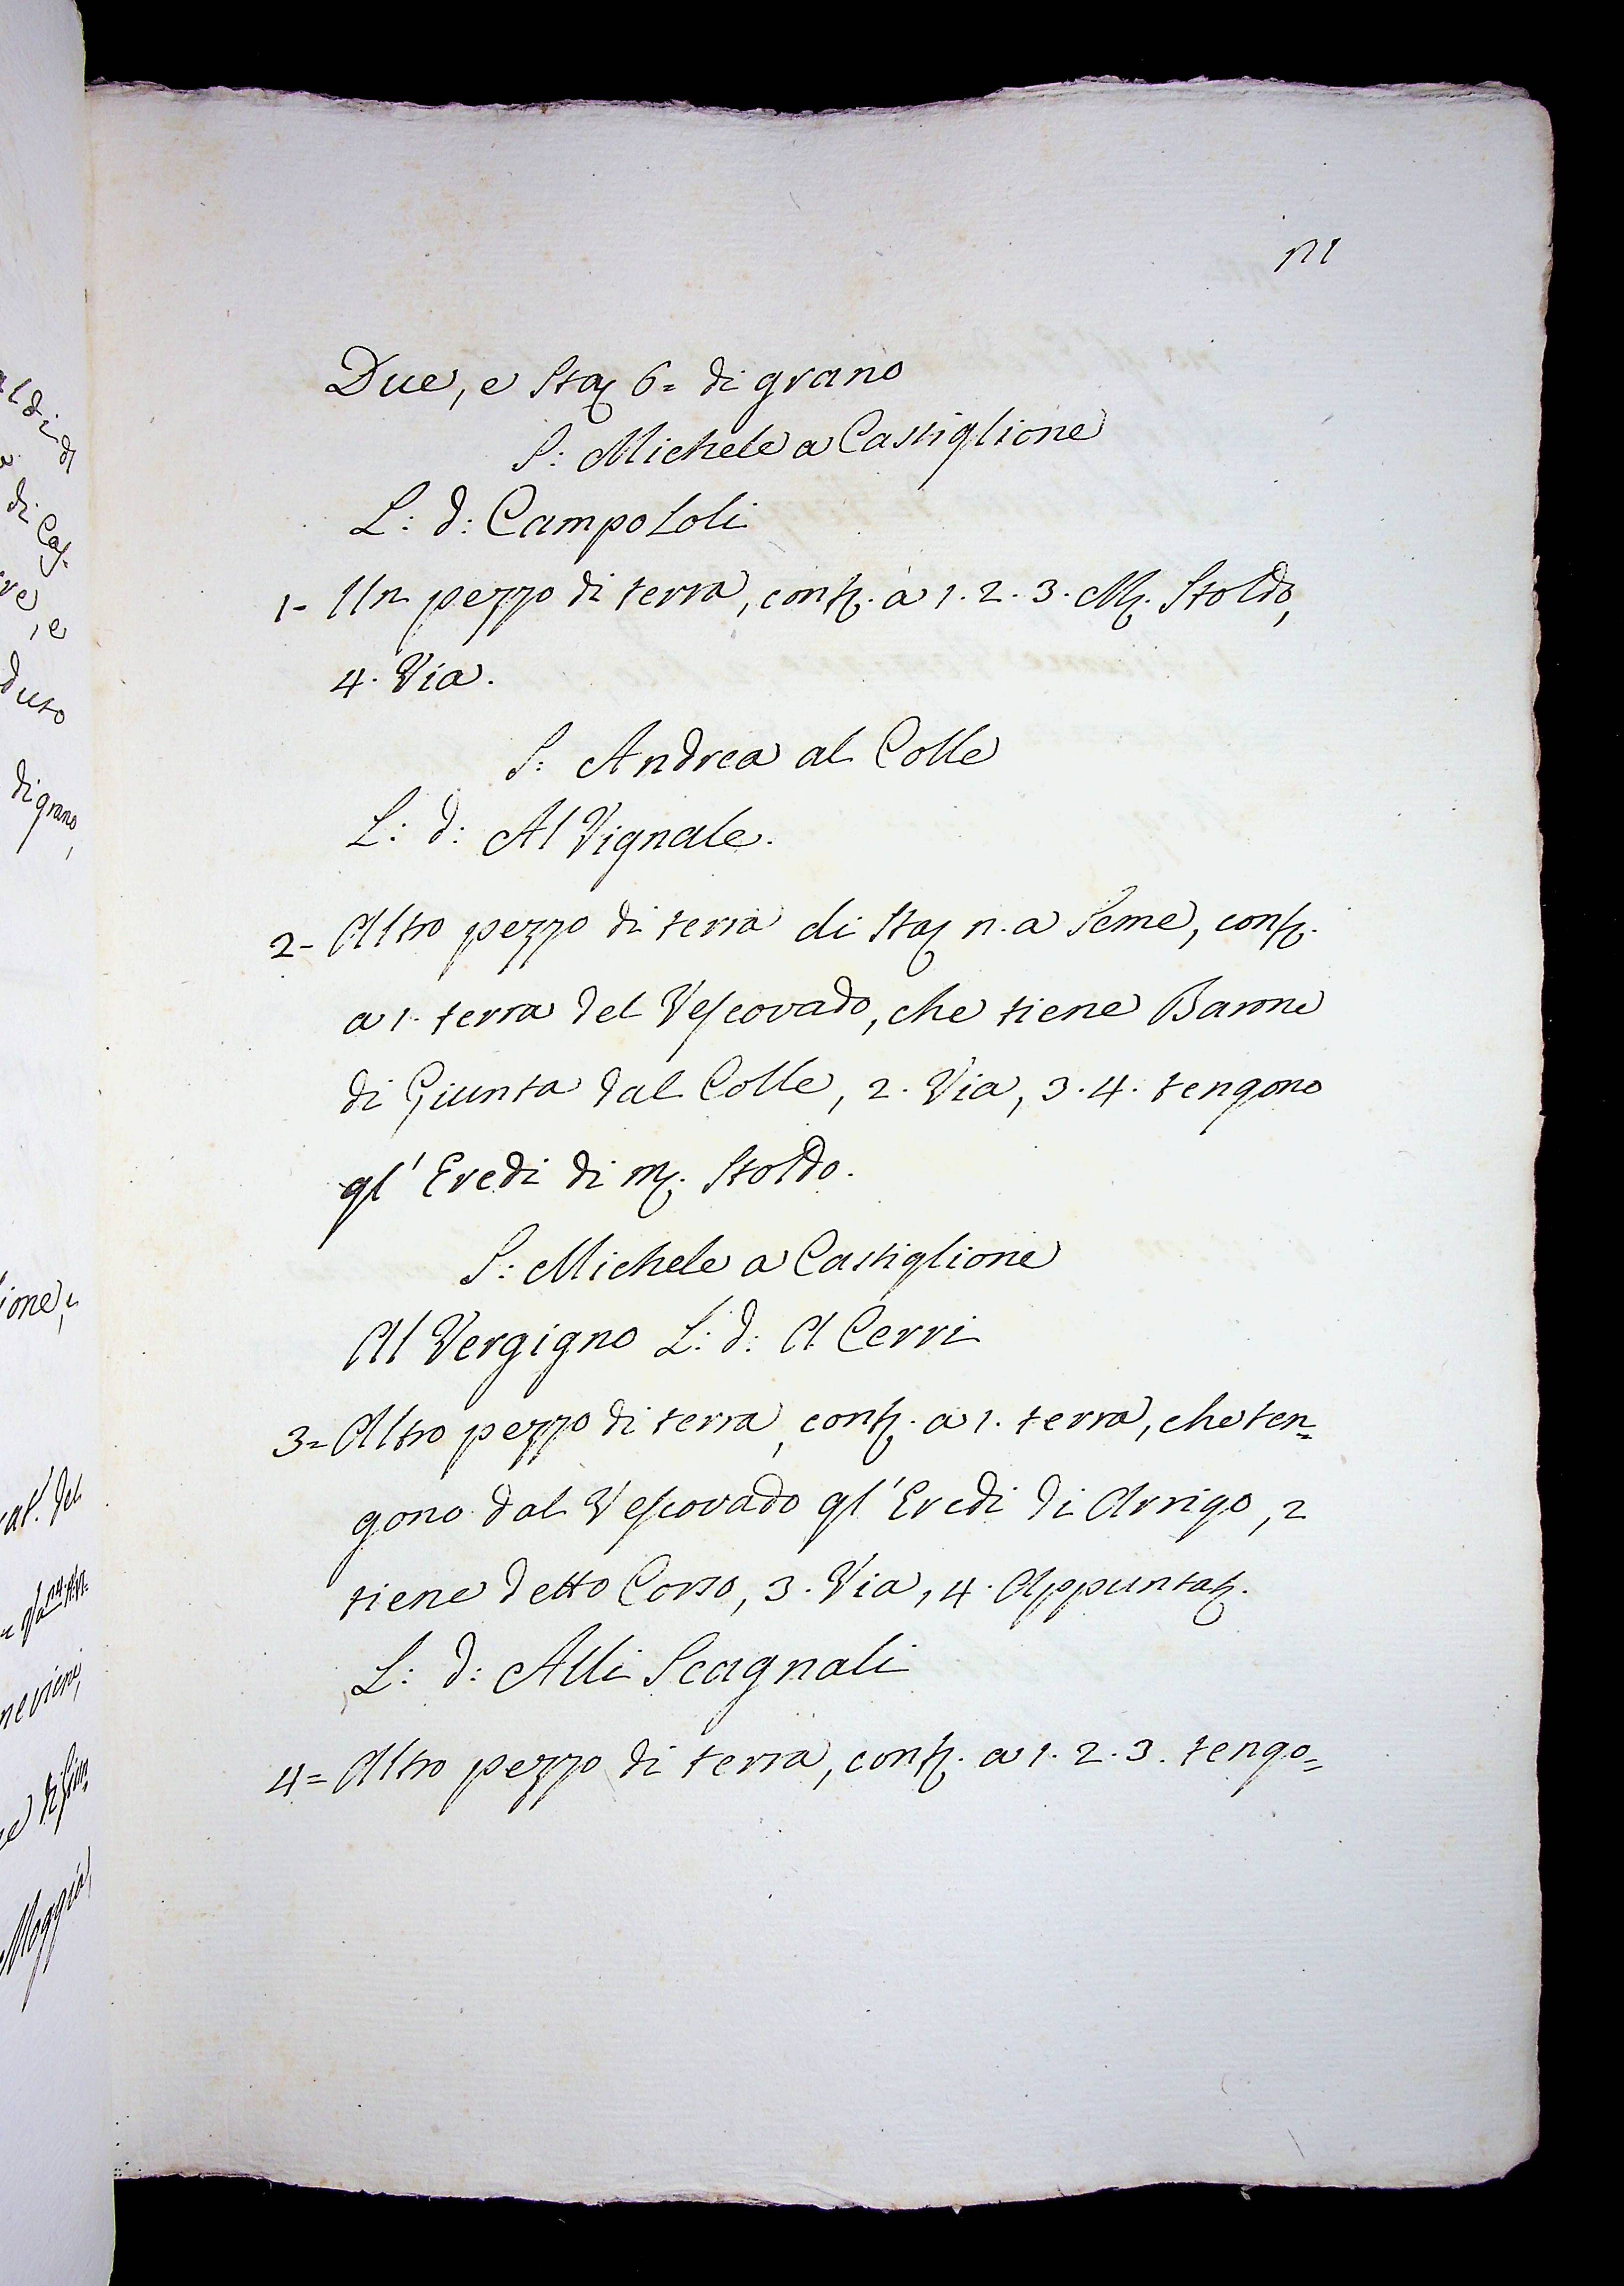 171
Due, e Staj 6= di grano
S: Michele a Castiglione
L: d: Campo Loli
1- Un pezzo di terra, conf. a 1. 2. 3. M. Stoldo,
4. Via.
S: Andrea al Colle
L: d: Al Vignale.
2- Altro pezzo di terra di Staj n. a Seme, conf.
a 1. terra del Vescovado, che tiene Barone
di Giunta dal Colle, 2. Via, 3. 4. tengono
gl' Eredi di m. Stoldo.
S: Michele a Castiglione
Al Vergigno L: d: A Cerri
3= Altro pezzo di terra, conf. a 1. terra, che ten=
gono dal Vescovado gl' Eredi di Arrigo, 2
tiene detto Corso, 3. Via, 4. Appuntat.
L: d: Alli Scagnali
4= Altro pezzo di terra, conf. a 1. 2. 3. tengo=
di grano,